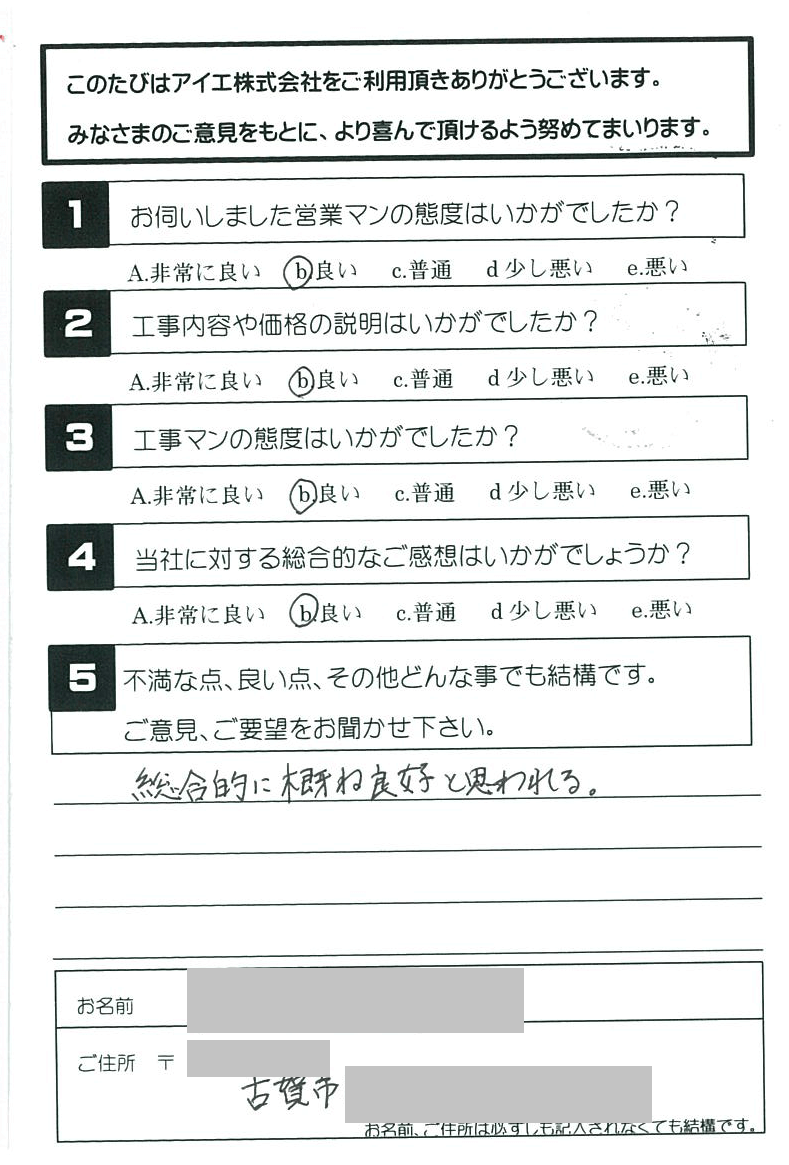 このたびはアイエ株式会社をご利用頂きありがとうございます。
みなさまのご意見をもとに、より喜んで頂けるよう努めてまいります。
1 お伺いしました営業マンの態度はいかがでしたか？
A.非常に良い b.良い c.普通 d 少し悪い e.悪い
2 工事内容や価格の説明はいかがでしたか？
A.非常に良い b.良い c.普通 d 少し悪い e.悪い
3 工事マンの態度はいかがでしたか？
A.非常に良い b.良い c.普通 d 少し悪い e.悪い
4 当社に対する総合的なご感想はいかがでしょうか？
A.非常に良い b.良い c.普通 d 少し悪い e.悪い
5 不満な点、良い点、その他どんな事でも結構です。
ご意見、ご要望をお聞かせ下さい。
総合的に概ね良好と思われる。
お名前
ご住所 〒
古賀市
お名前、ご住所は必ずしも記入されなくても結構です。